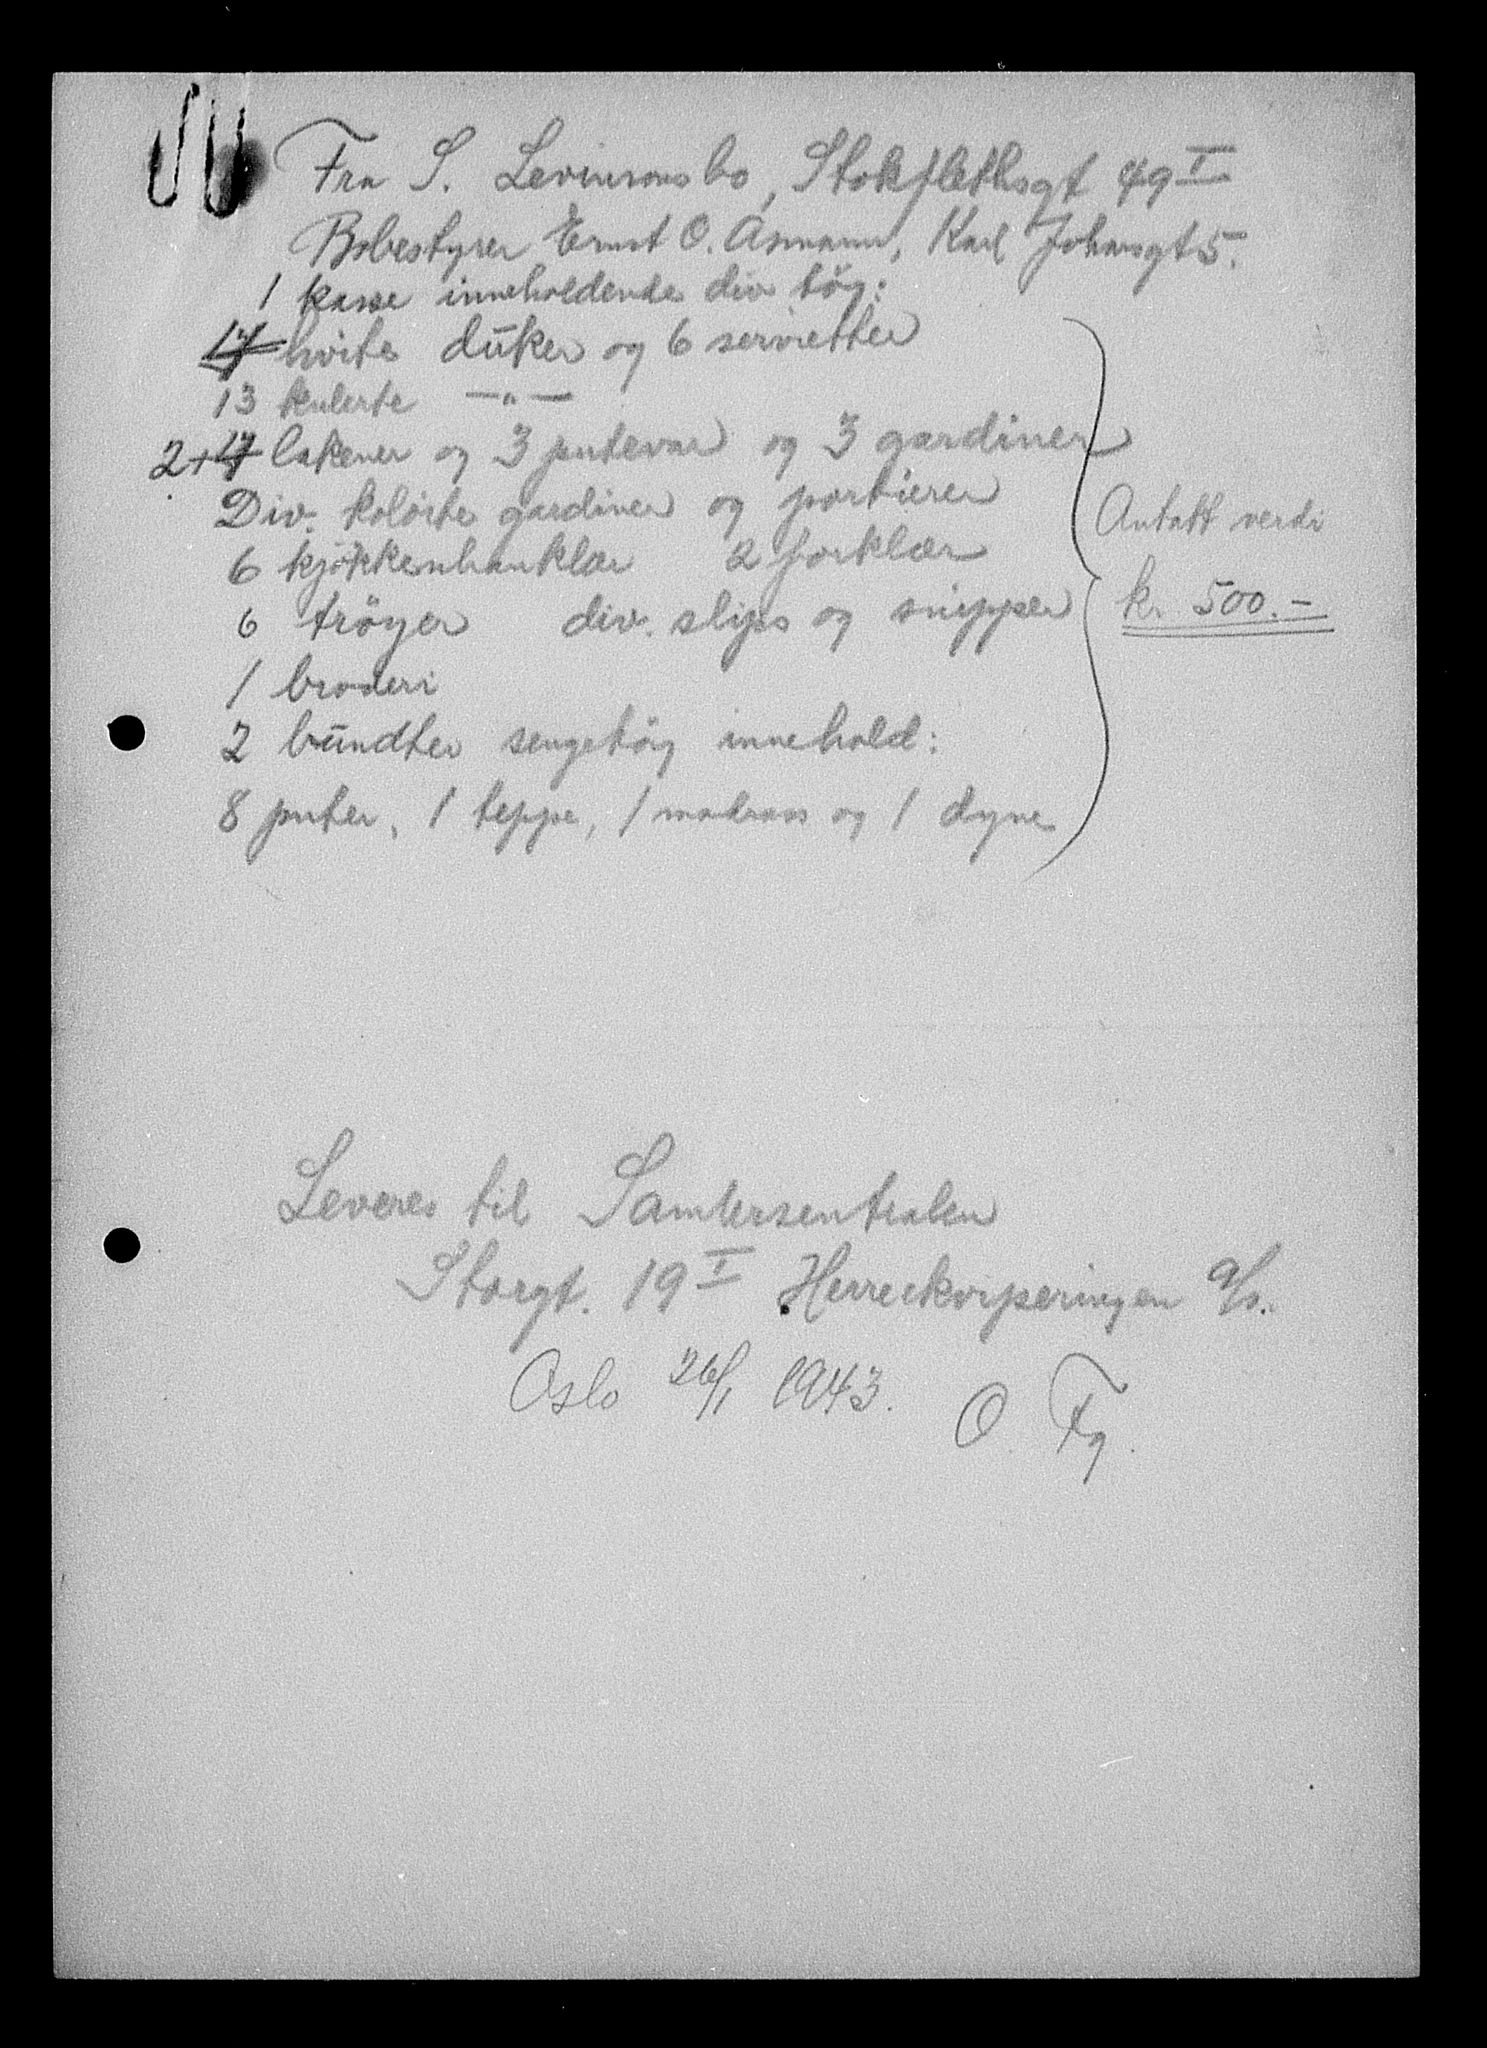 Fra S. Levinsons bo, Stokflethsgt 49 I
Bobestyrer Ernst O. Asmann, Karl Johansgt 5.
1 kasse inneholdende div tög:
17 hvite duker og 6 servietter
13 kulerte —"—
2+17 lakener og 3 putevar og 3 gardiner
Div. kolörte gardiner og portierer
6 kjökkenhanklær 2 forklær
6 tröyer div. slips og snipper
1 broderi
2 bundter sengetöy innehold:
8 puter, 1 teppe, 1 madrass og 1 dyne
Antatt verdi
kr. 500.-
Leveres til Samlersentralen
Storgt. 19 I Herreekviperingen a/s.
Oslo 26/1 1943. O. Fg.